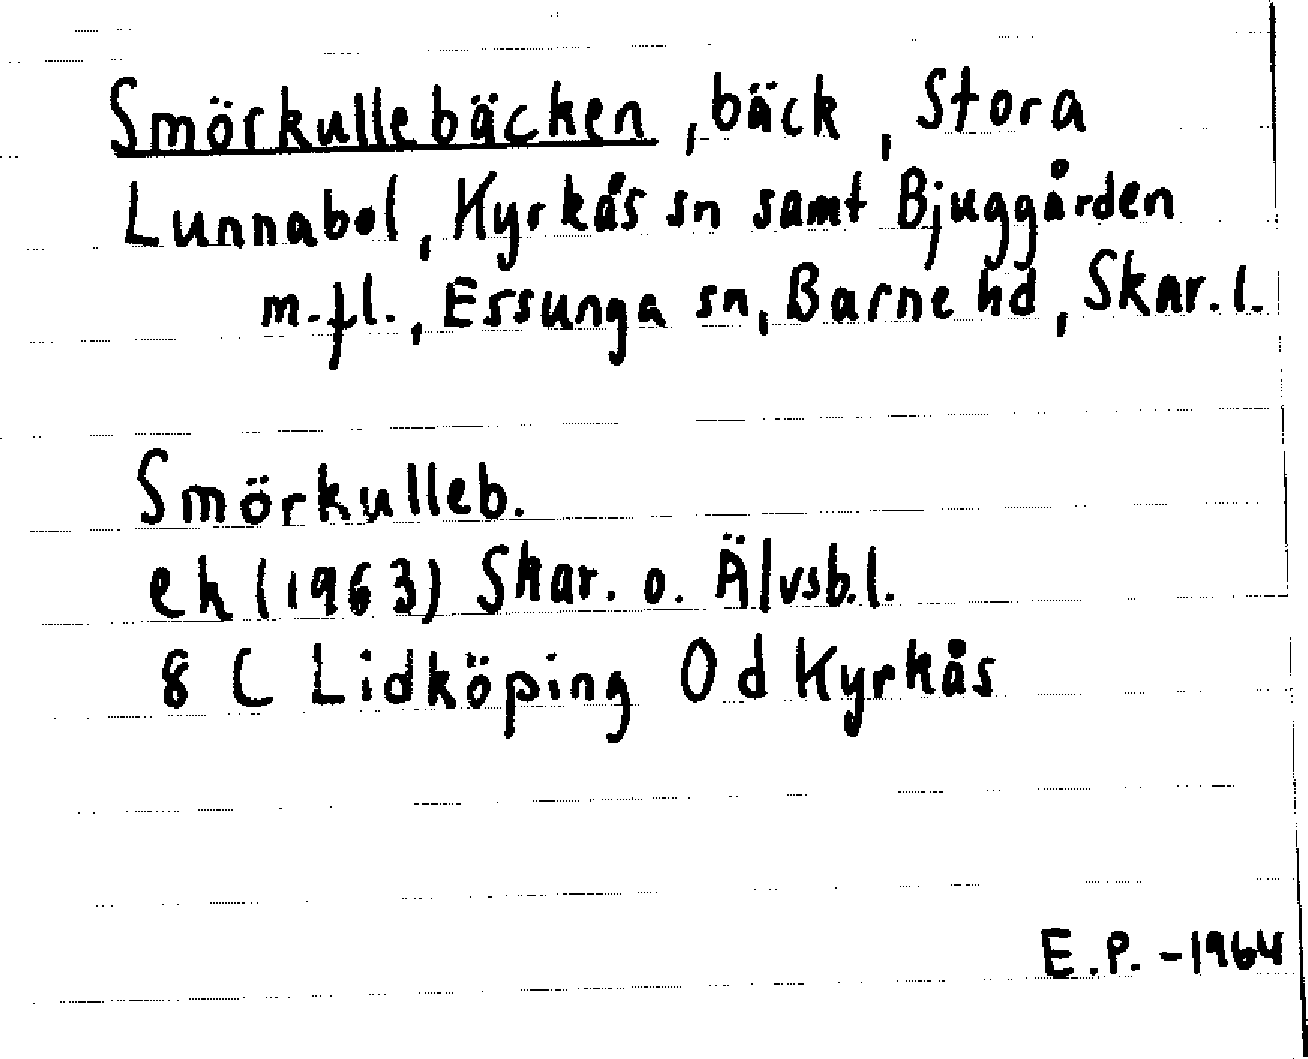 Smörkullebäcken, bäck, Stora
Lunnabol, Kyrkås sn samt Bjuggården
m.fl., Essunga sn, Barne hd, Skar. l.
Smörkulleb.
ek (1963) Skar. o. Älvsb.l.
8 C Lidköping 0 d Kyrkås
E.P. - 1964